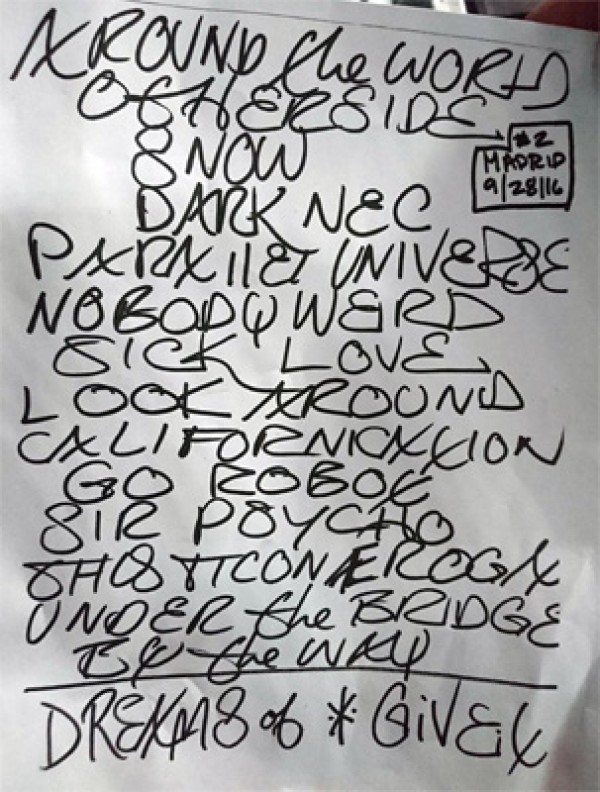 AROUND the WORLD
OTHERSIDE
#2
MADRID
9/28/16
8 NOW
DARK NEC
PARAllEl UNIVERSE
NOBODY WERD
SICK LOVE
LOOK AROUND
CALIFORNICATION
GO ROBOT
SIR PSYCHO
UNDER the BRIDGE
BY the WAY
DREAMS of * GiVEiT